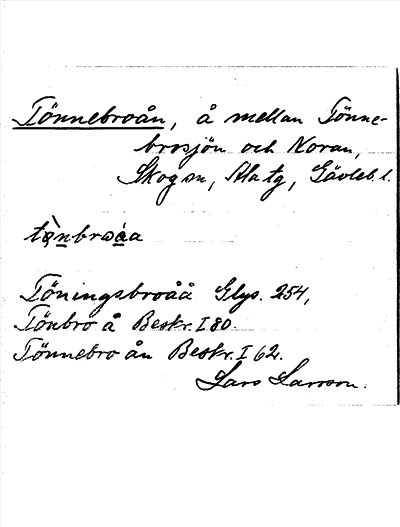 Tönnebroån, å mellan Tönne-
brosjön och Noran,
Skog sn, Ala tg, Gävleb. l.
tø̀nbrωåa
Töningsbroåå Glys. 254,
Tönbro å Beskr. I 80.
Tönnebro ån Beskr. I 62.
Lars Larsson.